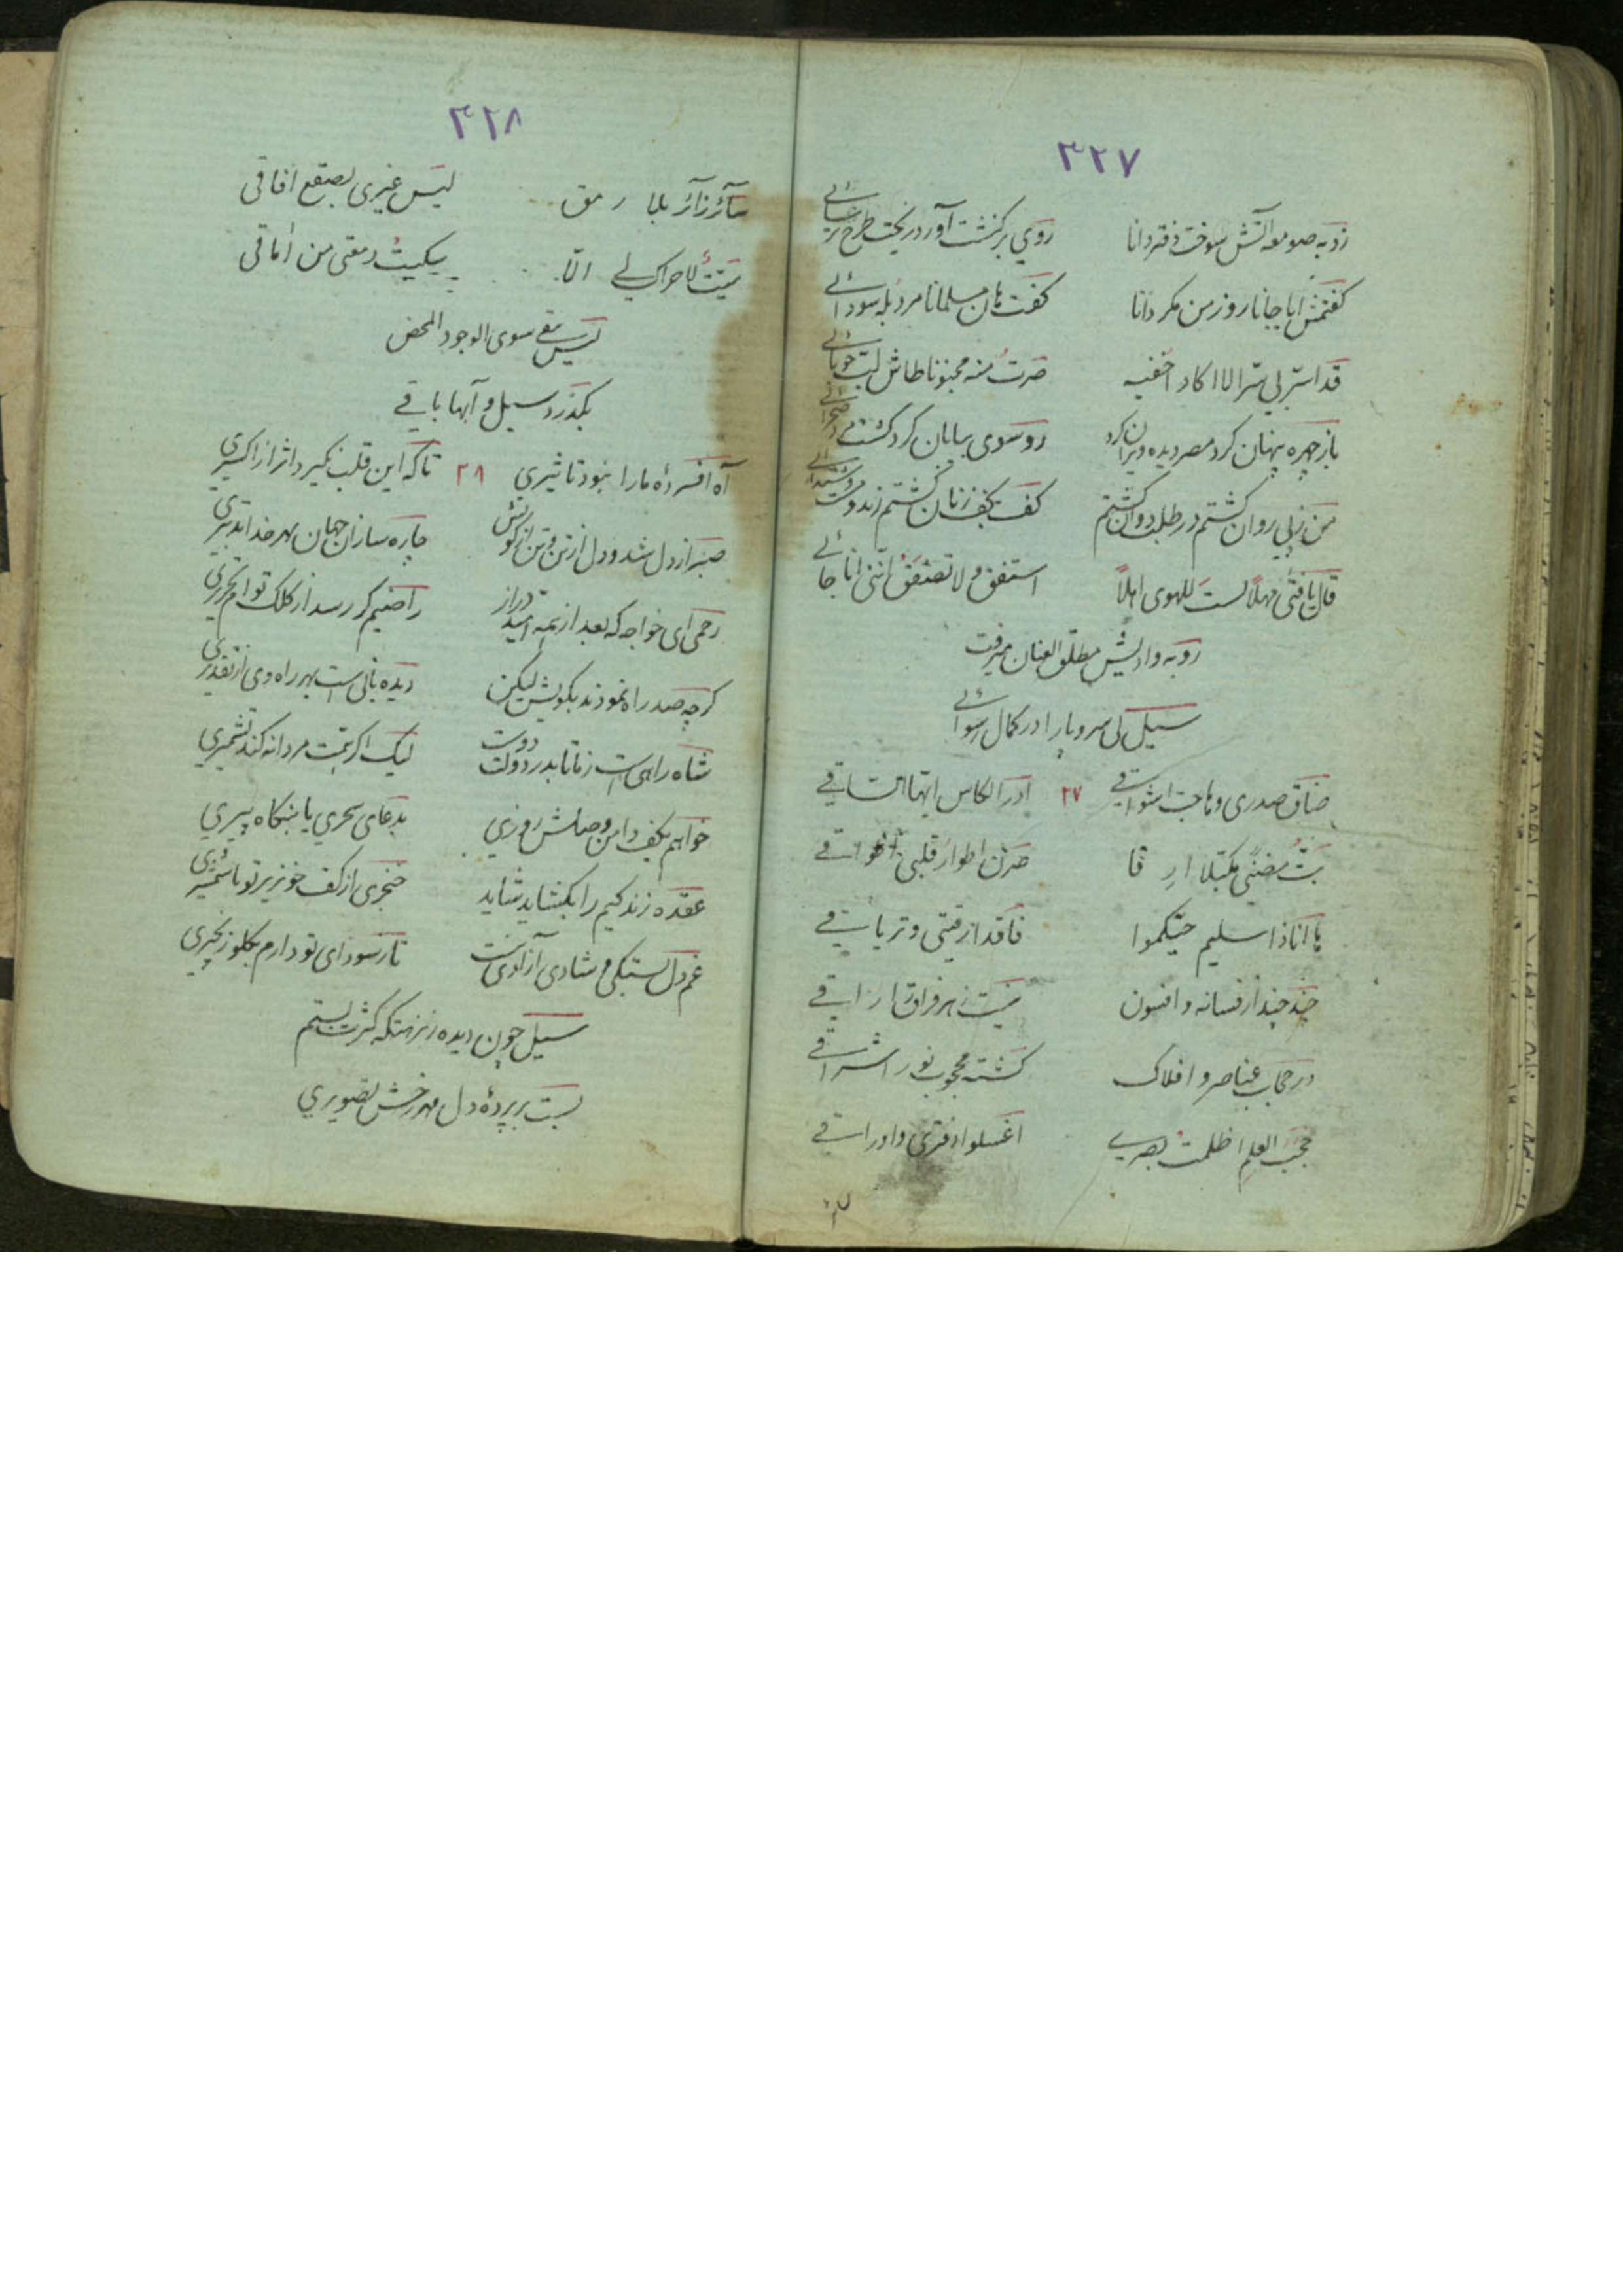 ٣٢٧
زد به صومعه آتش سوخت دفتر دانا روی برگذشت آورد ریخت طرح
گفتمش ایا جانا روز من مکر دانا گفت هان مسلمانا مرد بله سودائی
قد اسرّ بی سرا لا اکاد اخفیه صرت منه مجنونا طاش لبّ
باز چهره پنهان کرد مصر دیده ویران کرد رو سوی بیابان کرد گشت صحرائی
من ز پی روان گشتم در طلب دوان گشتم کف بکف زنان گشتم
قال یا فتی مهلاً لست للهوی اهلاً استفق و لا تصعق اننی انا
رو به وادیش مطلق العنان میرفت
سیل بی سر و پا را در کمال رسوائی
ضاق صدری و هاجت اشواقی ٢٧ ادر الکاس ایها الساقی
صرن اطوار قلبی
ها انا ذا سلیم حبّکموا فاقد ارقیتی و تریاقی
چند چند از فسانه و افسون نیست زهر فراق را راقی
در حجاب عناصر و افلاک گشته محجوب نور اشراقی
حجب العلم اظلمت بصری اغسلوا دفتری و اوراقی
٣٢٨
سائر زائر بلا رمق لیس غیری بصقع آفاقی
میّت لا حراک لی الّا یبکیت رمقی من اماقی
لیس یبقی سوی الوجود المحض
بگذرد سیل و آبها باقی
آه افسردهٔ ما را نبود تاثیری ٢٨ تا که این قلب نگیرد اثر از اکسیری
صبر از دل شد و دل از تن و تن از کویش چاره سازان جهان بهر خدا تدبیری
رحمی ای خواجه که بعد از همه امید دراز راضیم گر رسد از کلک توام تحریری
گرچه صد راه نمودند بکویش لیکن دیده بانی است بهر راه وی از تقدیری
شاه راهی است ز ما تا بدر دولت دوست لیک اگر همت مردانه کند تشمیری
خواهم بکف دامن وصلش روزی بدعای سحری یا شبگاه پیری
عقده زندگیم را بگشاید شاید خنجری از کف خونریز تو یا شمشیری
غم دل بستگی و شادی آزادی نیست تا ز سودای تو دارم بگلو زنجیری
سیل چون دیده ز نزهتگه کثرت بستم
بست بر پردهٔ دل مهر رخش تصویری